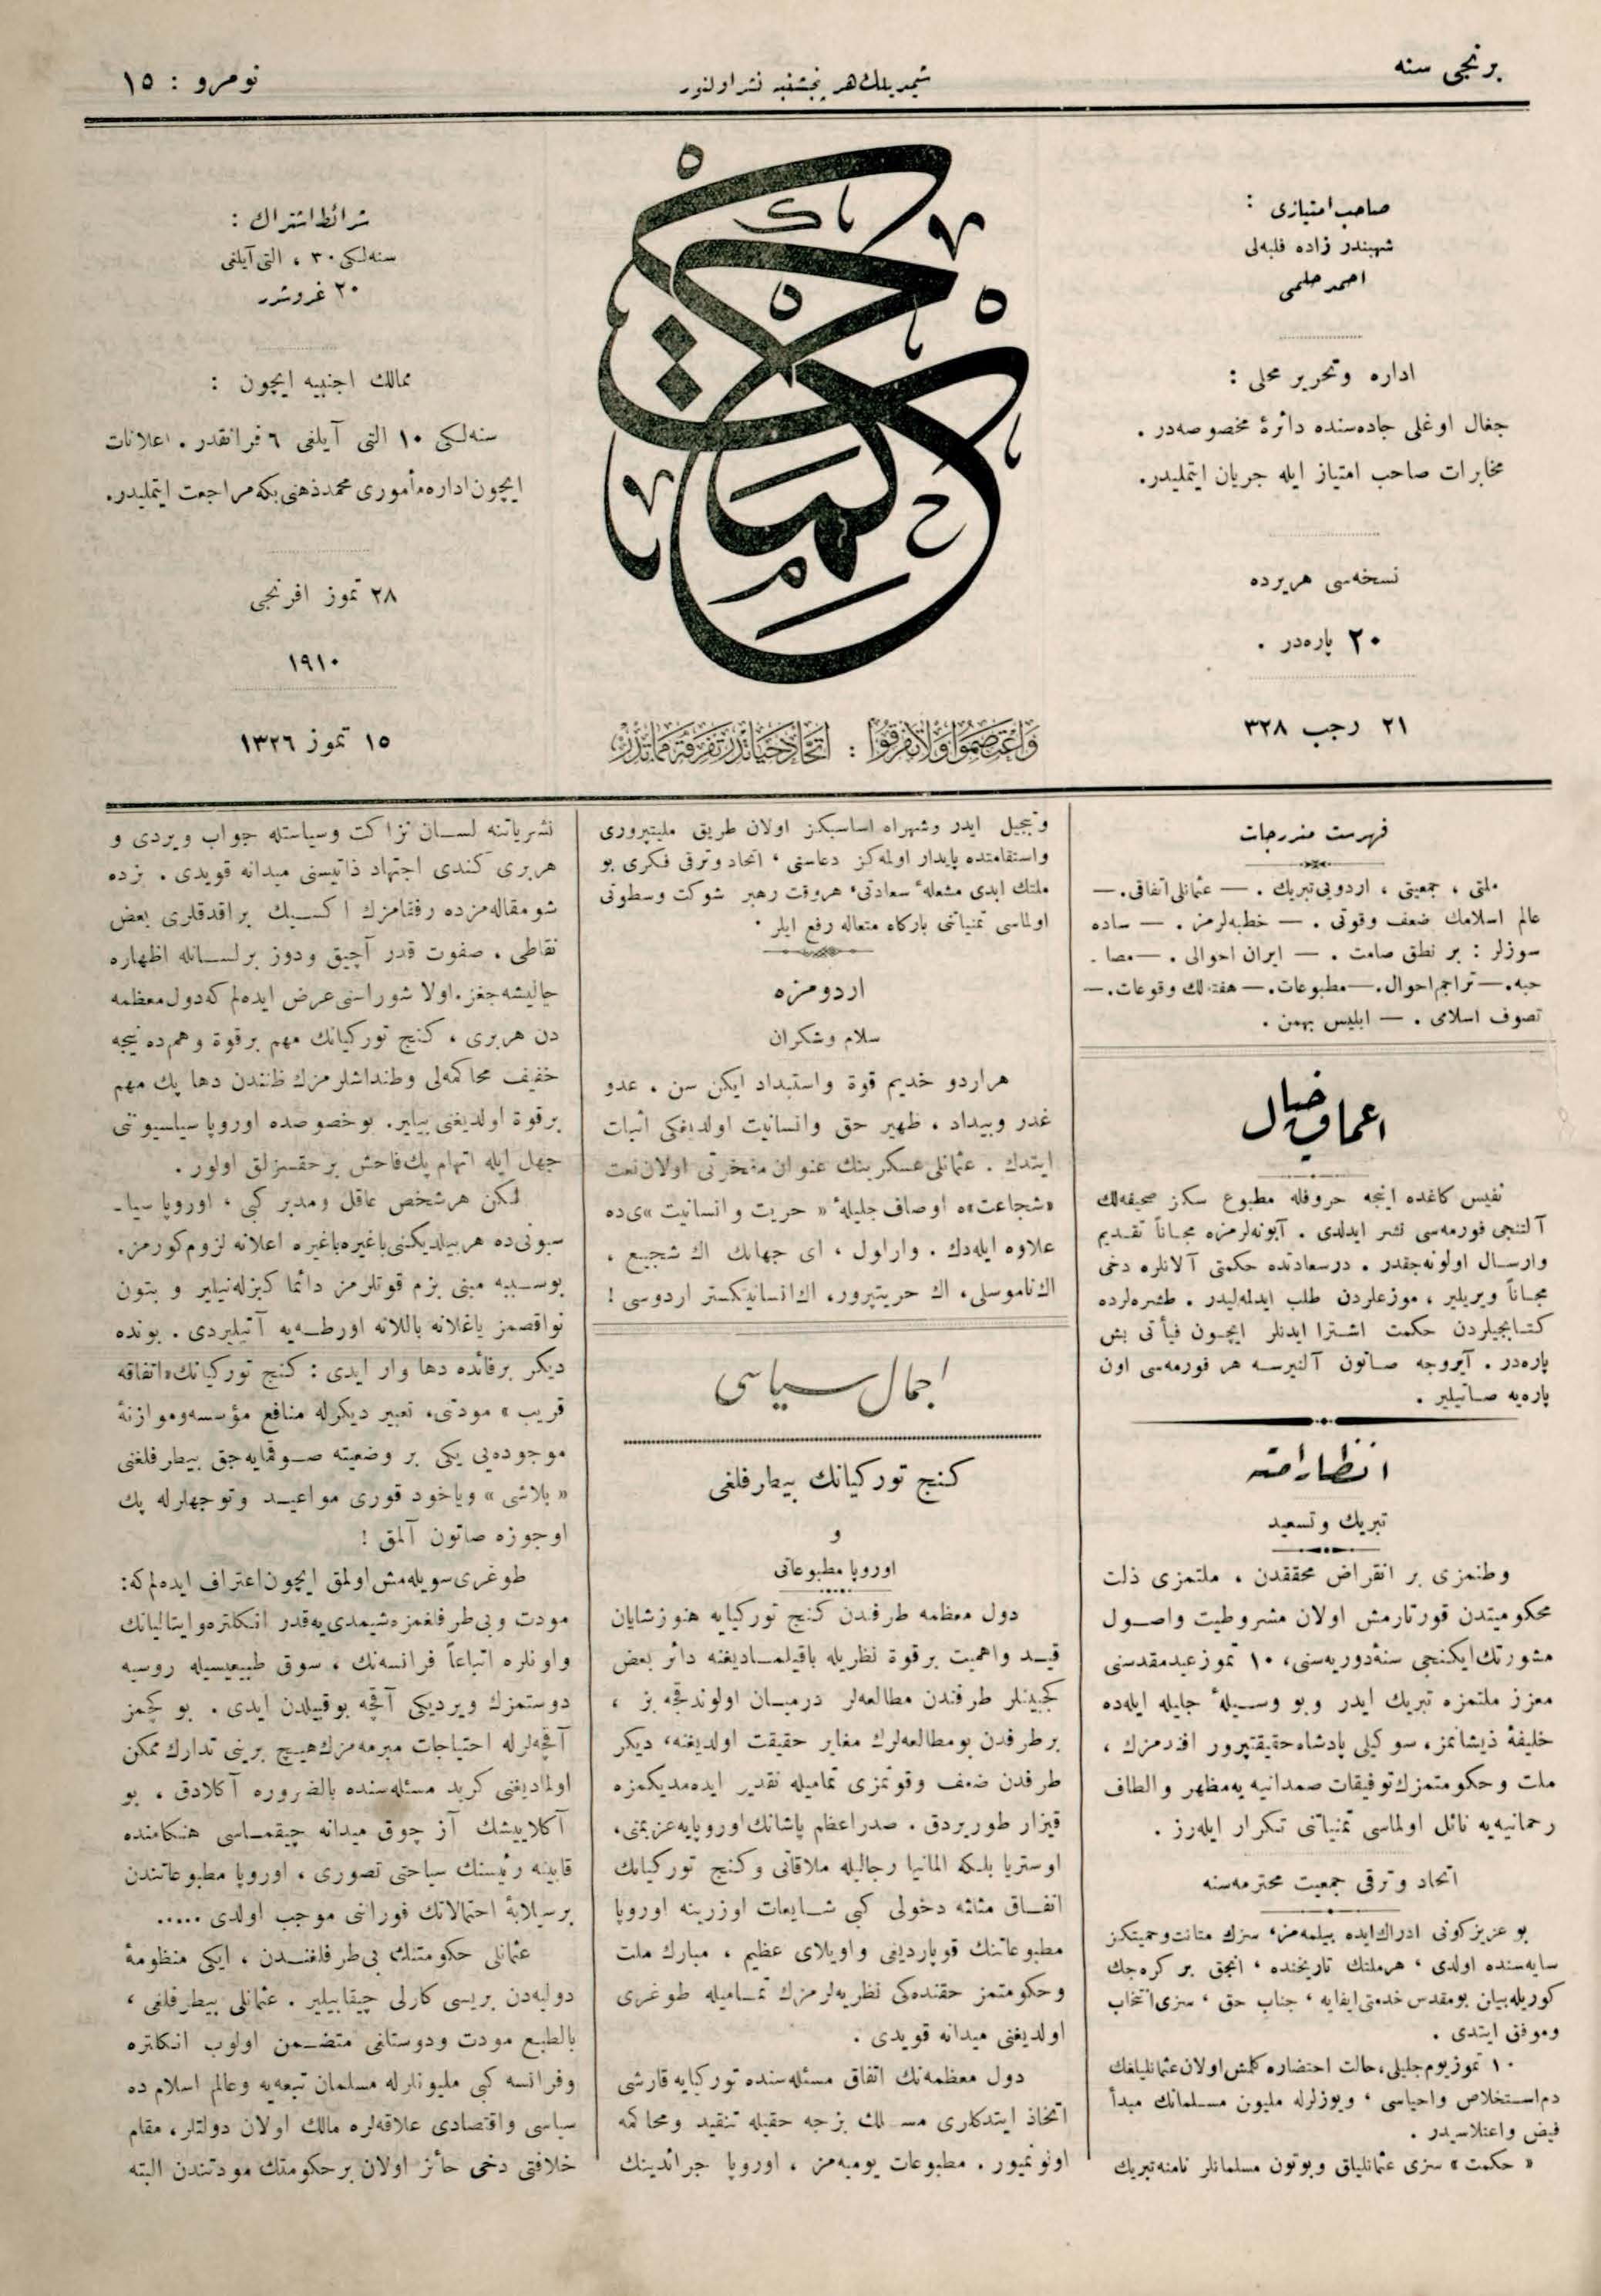 برنجى سنه
شيمديلك هر پنجشنبه نشر اولنور
نومرو : ١٥
صاحب امتيازى :
شهبندر زاده فلبه‌لى
احمد حلمى
اداره وتحرير محلى :
جغال اوغلى جاده‌سنده دائرۀ مخصوصه‌در .
مخابرات صاحب امتياز ايله جريان ايتمليدر.
نسخه‌سى هريرده
٢٠ پاره‌در .
٢١ رجب ٣٢٨
حكمت
وَاعْتَصِمُوا وَلَا تَفَرَّقُوا : اتحاد حياتدر تفرقه مماتدر
شرائط اشتراك :
سنه‌لكى ٣٠ ، التى آيلغى
٢٠ غروشدر
ممالك اجنبيه ايچون :
سنه‌لكى ١٠ التى آيلغى ٦ فرانقدر . اعلانات
ايچون اداره مأمورى محمد ذهنى بكه مراجعت ايتمليدر.
٢٨ تموز افرنجى
١٩١٠
١٥ تموز ١٣٢٦
فهرست مندرجات
ملتى ، جمعيتى ، اردويى تبريك . — عثمانلى اتفاقى . —
عالم اسلامك ضعف وقوتى . — خطبه‌لرمز . — ساده
سوزلر : بر نطق صامت . — ايران احوالى . — مصا .
حبه . — تراجم احوال . — مطبوعات . — هفته‌لك وقوعات . —
تصوف اسلامى . — ابليس بهمن .
اعماق خيال
نفيس كاغده اينجه حروفله مطبوع سكز صحيفه‌لك
آلتنجى فورمه‌سى نشر ايدلدى . آبونه‌لرمزه مجاناً تقديم
وارسال اولونه‌جقدر . درسعادتده حكمتى آلانلره دخى
مجاناً ويريلير ، موزعلردن طلب ايدلمه‌ليدر . طشره‌لرده
كتابجيلردن حكمت اشترا ايدنلر ايچون فيأتى بش
پاره‌در . آيروجه صاتون آلنيرسه هر فورمه‌سى اون
پاره‌يه صاتيلير .
تبريك وتسعيد
وطنمزى بر انقراض محققدن ، ملتمزى ذلت
محكوميتدن قورتارمش اولان مشروطيت واصول
مشورتك ايكنجى سنۀ دوريه‌سنى، ١٠ تموز عيد مقدسنى
معزز ملتمزه تبريك ايدر وبو وسيلۀ جليله ايله‌ده
خليفۀ ذيشانمز، سوكيلى پادشاه حقيقتپرور افندمزك ،
ملت وحكومتمزك توفيقات صمدانيه يه مظهر والطاف
رحمانيه‌يه نائل اولماسى تمنياتنى تكرار ايله‌رز .
اتحاد وترقى جمعيت محترمه‌سنه
بو عزيز كونى ادراك ايده بيلمه‌مز، سزك متانت وحميتكز
سايه‌سنده اولدى ، هرملتك تاريخنده ، انجق بر كره‌جك
كوريله‌بيلن بومقدس خدمتى ايفايه ، جناب حق ، سزى انتخاب
وموفق ايتدى .
١٠ تموز يوم جليلى، حالت احتضاره كلمش اولان عثمانليلغك
دم استخلاص واحياسى ، ويوزلرله مليون مسلمانك مبدأ
فيض واعتلاسيدر .
« حكمت » سزى عثمانليلق وبوتون مسلمانلر نامنه تبريك
وتبجيل ايدر وشهراه اساسيكز اولان طريق مليتپرورى
واستقامتده پايدار اولمه‌كز دعاسنى ، اتحاد وترقى فكرى بو
ملتك ابدى مشعلۀ سعادتى، هروقت رهبر شوكت وسطوتى
اولماسى تمنياتنى باركاه متعاله رفع ايلر .
اردومزه
سلام وشكران
هراردو خديم قوة واستبداد ايكن سن ، عدو
غدر وبيداد ، ظهير حق وانسانيت اولديغكى اثبات
ايتدك . عثمانلى عسكرينك عنوان مفخرتى اولان نعت
«شجاعت»ه اوصاف جليلۀ « حريت وانسانيت »ى ده
علاوه ايله‌دك . واراول ، اى جهانك اك شجيع ،
اك ناموسلى، اك حريتپرور، اك انسانيتكستر اردوسى !
اجمال سياسى
كنج توركيانك بيطرفلغى
و
اوروپا مطبوعاتى
دول معظمه طرفندن كنج توركيايه هنوزشايان
قيد واهميت برقوة نظريله باقيلماديغنه دائر بعض
كجيدنلر طرفندن مطالعه‌لر درميان اولوندقجه بز ،
برطرفدن بومطالعه‌لرك مغاير حقيقت اولديغنه، ديكر
طرفدن ضعف وقوتمزى تماميله تقدير ايده‌مديكمزه
قيزار طوريردق . صدراعظم پاشانك اوروپايه عزيمتى،
اوستريا بلكه المانيا رجاليله ملاقاتى وكنج توركيانك
اتفاق مثلثه دخولى كبى شايعات اوزرينه اوروپا
مطبوعاتنك قوپارديغى واويلاى عظيم ، مبارك ملت
وحكومتمز حقنده‌كى نظريه‌لرمزك تماميله طوغرى
اولديغنى ميدانه قويدى .
دول معظمه‌نك اتفاق مسئله‌سنده توركيايه قارشى
اتخاذ ايتدكلرى مسلك بزجه حقيله تنقيد ومحاكمه
اولونميور . مطبوعات يوميه‌مز ، اوروپا جرائدينك
نشرياتنه لسان نزاكت وسياستله جواب ويردى و
هربرى كندى اجتهاد ذاتيسنى ميدانه قويدى . بزده
شو مقاله‌مزده رفقامزك اكسيك براقدقلرى بعض
نقاطى ، صفوت قدر آچيق ودوز برلسانله اظهاره
چاليشه‌جغز. اولا شوراسنى عرض ايده‌لم كه دول معظمه
دن هربرى ، كنج توركيانك مهم برقوة وهم ده نيجه
خفيف محاكمه‌لى وطنداشلرمزك ظنندن دها پك مهم
برقوة اولديغنى بيلير. بو خصوصده اوروپا سياسيوننى
جهل ايله اتهام پك فاحش برحقسزلق اولور .
لكن هرشخص عاقل ومدبر كبى ، اوروپا سيا-
سيونى ده هربيلديكنى باغيره باغيره اعلانه لزوم كورمز.
بوسببه مبنى بزم قوتلرمز دائما كيزله‌نيلير و بتون
نواقصمز ياغلانه باللانه اورطه‌يه آتيليردى . بونده
ديكر برفائده دها وار ايدى : كنج توركيانك «اتفاقه
قريب » مودتى، تعبير ديكرله منافع مؤسسه وموازنۀ
موجوده‌يى يكى بر وضعيته صوقمايه‌جق بيطرفلغنى
« بلاشى » وياخود قورى مواعيد وتوجهلرله پك
اوجوزه صاتون آلمق !
طوغرى سويله‌مش اولمق ايچون اعتراف ايده‌لم كه:
مودت وبى طرفلغمزه شيمدى‌يه قدر انكلتره وايتاليانك
واونلره اتباعاً فرانسه‌نك ، سوق طبيعيسيله روسيه
دوستمزك ويرديكى آقچه بوقبيلدن ايدى . بو كچمز
آقچه‌لرله احتياجات مبرمه‌مزك هيچ برينى تدارك ممكن
اولماديغنى كريد مسئله‌سنده بالضروره آكلادق ، بو
آكلاييشك آز چوق ميدانه چيقماسى هنكامنده
قابينه رئيسنك سياحتى تصورى ، اوروپا مطبوعاتندن
برسيلابۀ احتمالاتك فوراننى موجب اولدى .....
عثمانلى حكومتنك بى طرفلغندن ، ايكى منظومۀ
دوليه‌دن بريسى كارلى چيقابيلير . عثمانلى بيطرفلغى ،
بالطبع مودت ودوستلغى متضمن اولوب انكلتره
وفرانسه كبى مليونلرله مسلمان تبعه‌يه وعالم اسلام ده
سياسى واقتصادى علاقه‌لره مالك اولان دولتلر، مقام
خلافتى دخى حائز اولان برحكومتك مودتندن البته